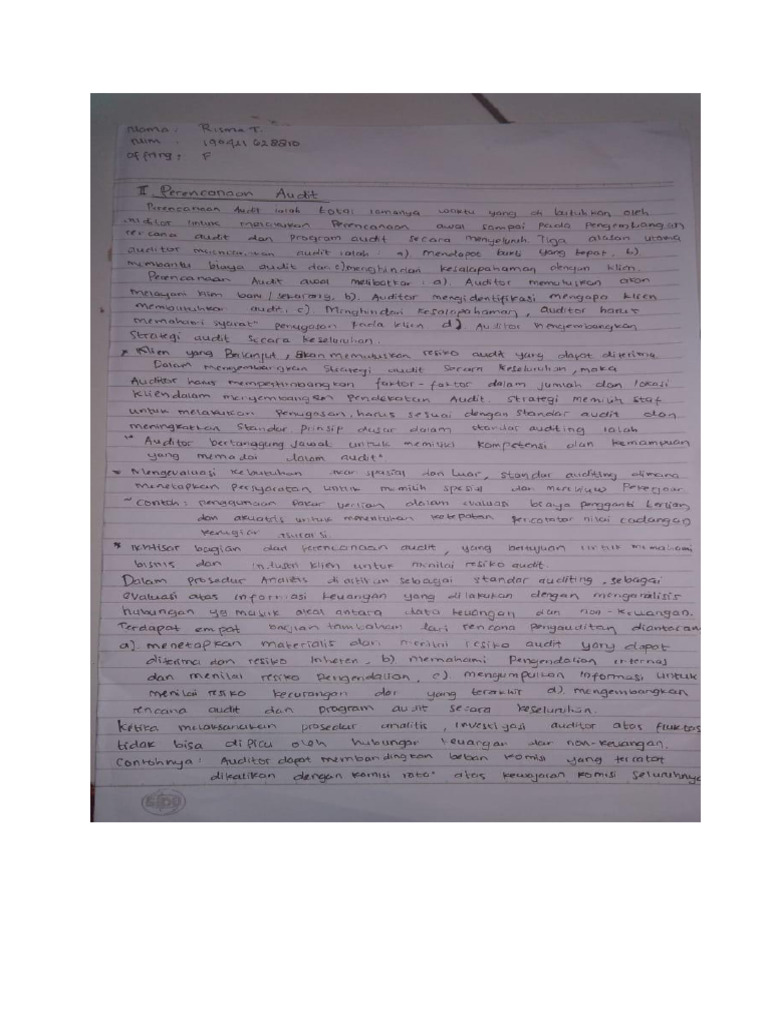 Nama : Risma T.
Nim : 190421628810
Offring : F
II. Perencanaan Audit
Perencanaan Audit ialah total lamanya waktu yang di butuhkan oleh
auditor untuk melakukan Perencanaan awal sampai pada Pengembangan
rencana audit dan program audit secara menyeluruh. Tiga alasan utama
auditor audit ialah : a) mendapat bukti yang tepat, b)
membantu biaya audit dan c) menghindari kesalapahaman dengan klien.
Perencanaan Audit awal melibatkan : a). Auditor memutuskan akan
melayani klien baru / sekarang, b). Auditor mengidentifikasi mengapa klien
membutuhkan audit, c). Menghindari kesalapahaman, auditor harus
memahami syarat" penugasan pada klien d). Auditor mengembangkan
Strategi audit secara keseluruhan.
* Klien yang Berlanjut, akan memutuskan resiko audit yang dapat diterima.
Dalam mengembangkan Strategi audit Secara keseluruhan, maka
Auditor harus mempertimbangkan faktor-faktor dalam jumlah dan lokasi
klien dalam mengembangkan pendekatan Audit. Strategi memilih staf
untuk melakukan penugasan, harus sesuai dengan standar audit dan
meningkatkan Standar Prinsip dasar dalam standar auditing ialah
" Auditor bertanggung jawab untuk memiliki kompetensi dan kemampuan
yang memadai dalam audit"
* Mengevaluasi kebutuhan luar spesial dan luar, standar auditing dimana
menetapkan persyaratan untuk memilih spesial dan mereview Pekerjaan
~ Contoh : penggunaan pakar berlian dalam evaluasi biaya pengganti berlian,
dan aktuaris untuk menentukan ketepatan pencatatan nilai cadangan
kerugian asuransi.
* Ikhtisar bagian dari perencanaan audit, yang bertujuan untuk memahami
bisnis dan industri klien untuk menilai resiko audit.
Dalam prosedur Analitis diartikan sebagai standar auditing, sebagai
evaluasi atas informasi keuangan yang dilakukan dengan menganalisis
hubungan yg masuk akal antara data keuangan dan non-keuangan.
Terdapat empat bagian tambahan dari rencana pengauditan diantaran
a) menetapkan materialis dan menilai resiko audit yang dapat
diterima dan resiko inheren, b) memahami Pengendalian internal
dan menilai resiko pengendalian, c) mengumpulkan informasi untuk
menilai resiko kecurangan dan yang terakhir d). mengembangkan
rencana audit dan program audit secara keseluruhan.
Ketika melaksanakan prosedur analitis, investigasi auditor atas fluktas
tidak bisa dipicu oleh hubungan keuangan dan non-keuangan.
Contohnya : Auditor dapat membandingkan beban komisi yang tercatat
dikalikan dengan komisi rata" atas kewajaran komisi seluruhnya